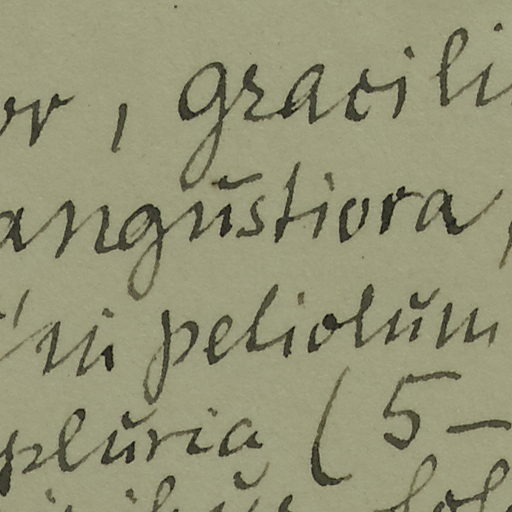 or, gracili
angŭstiora,
in petiolŭm
plŭria (5-